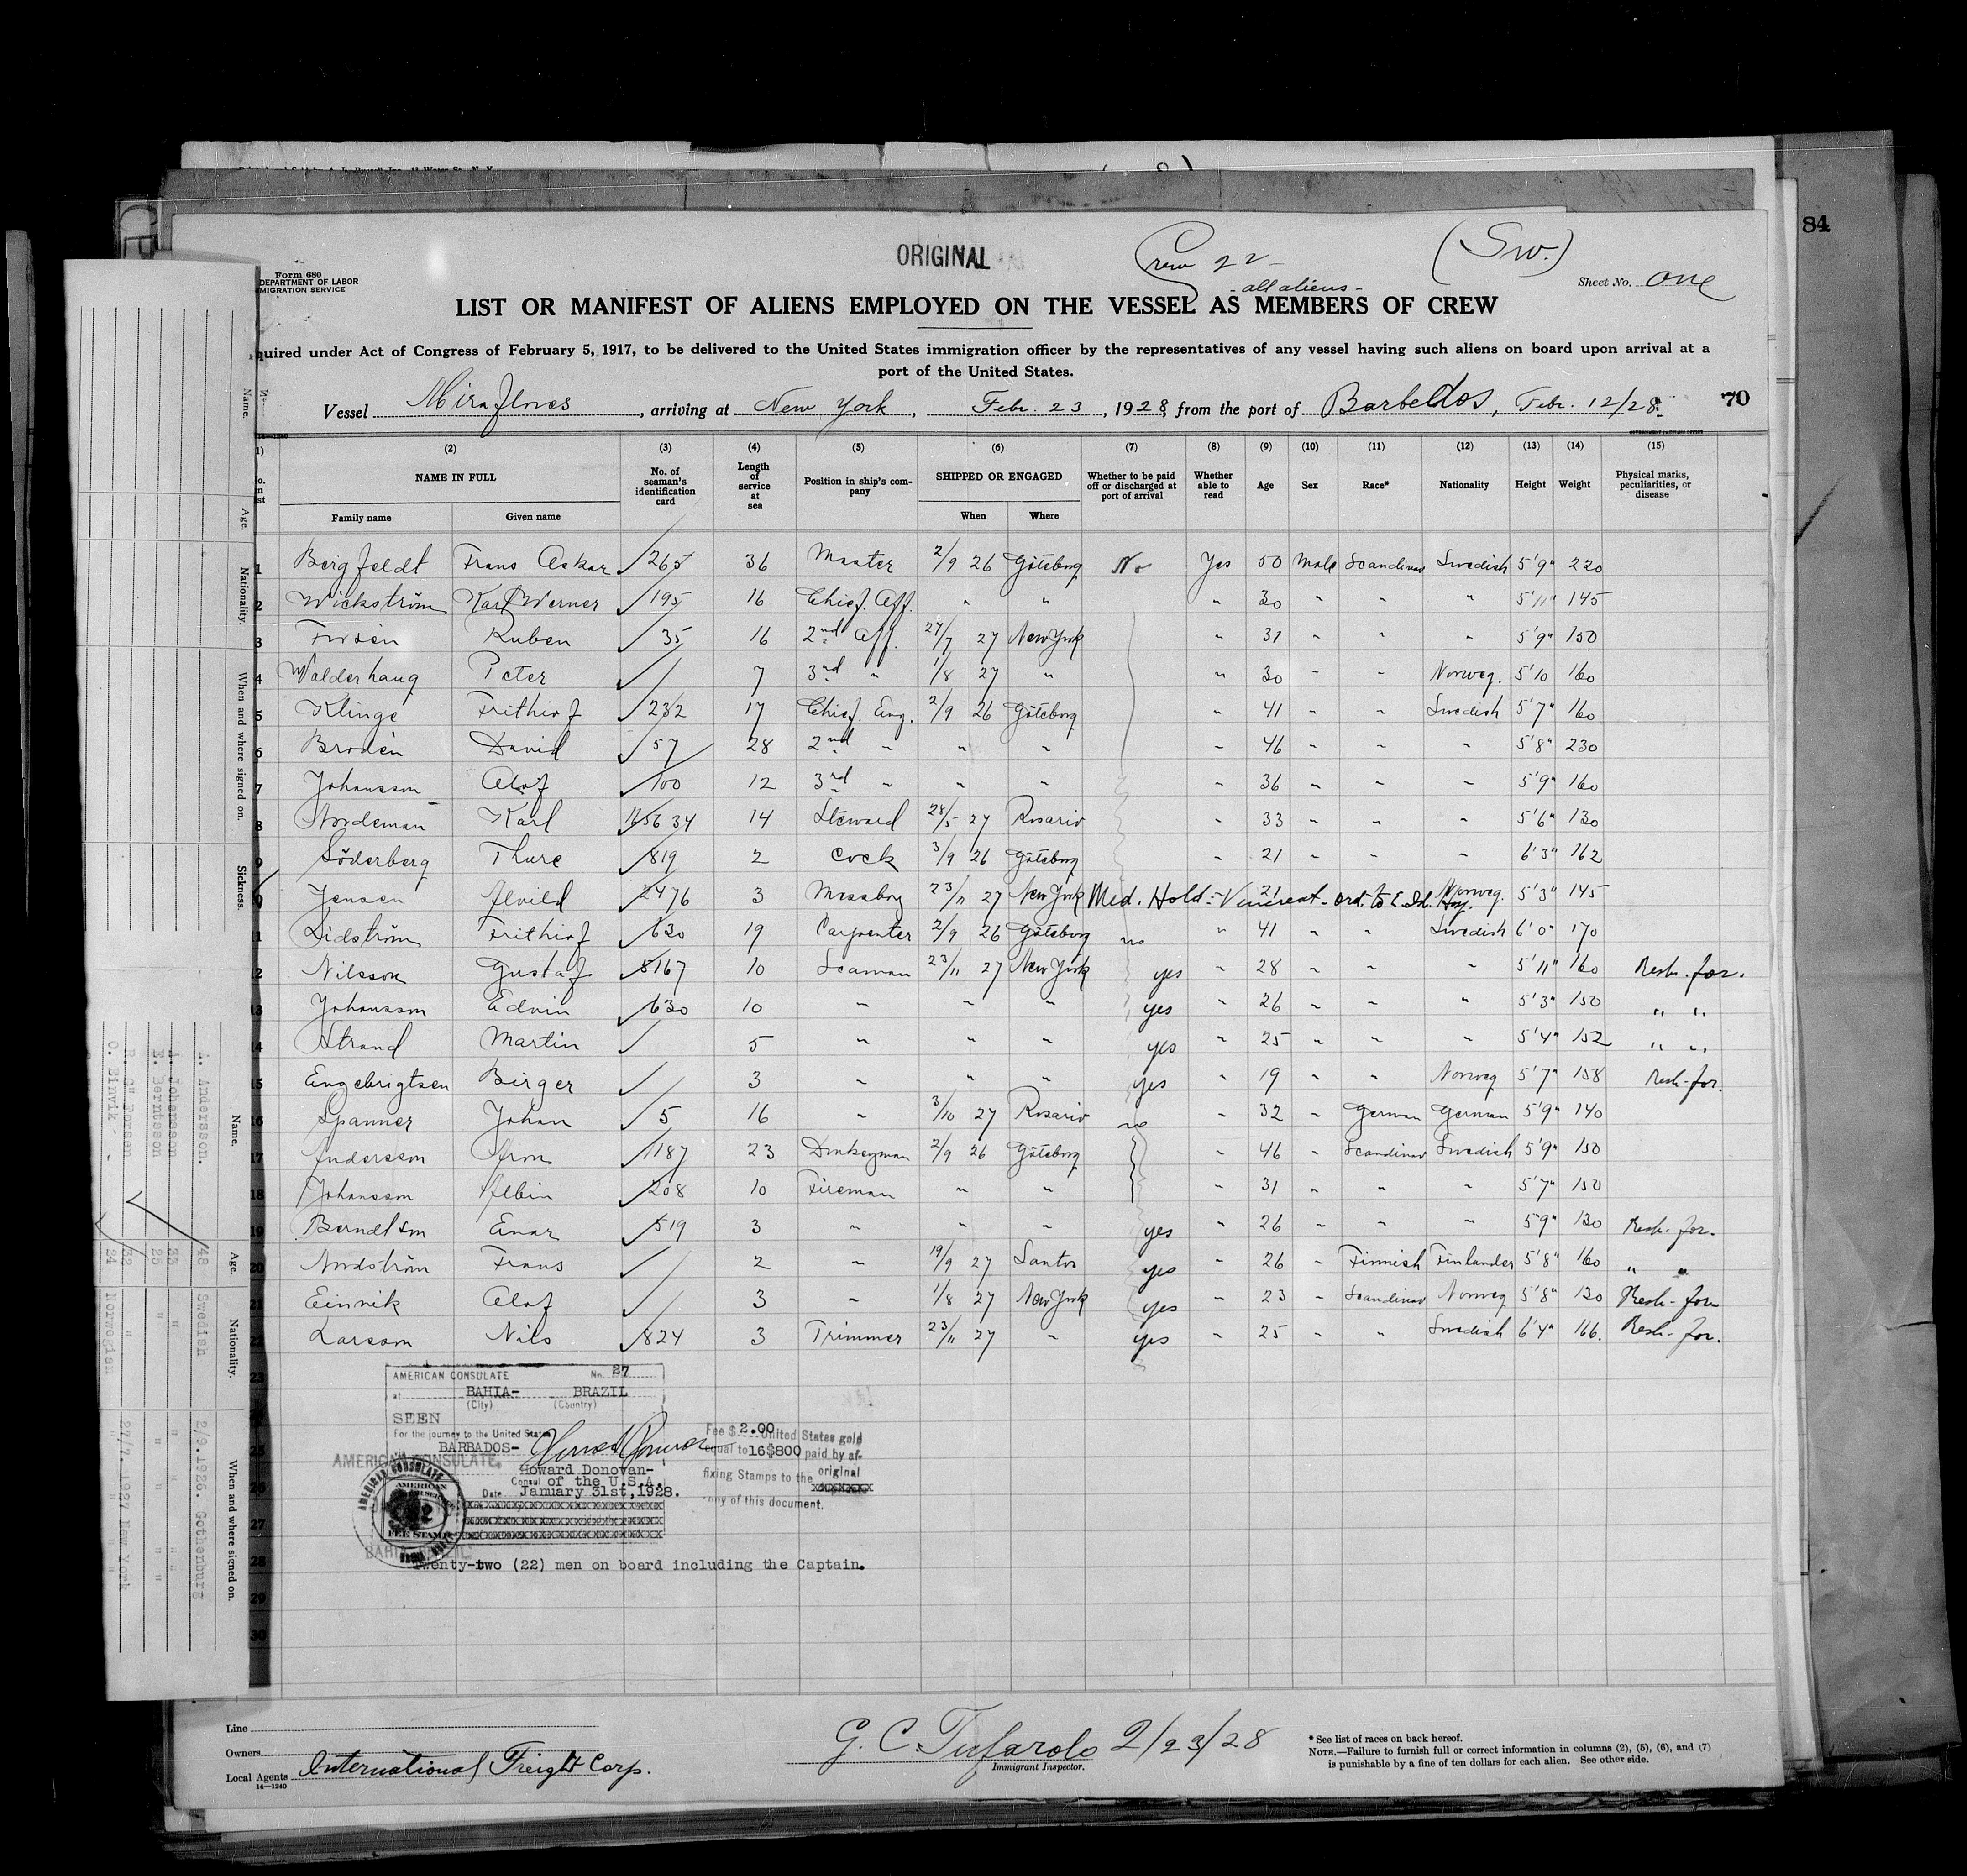 84
ORIGINAL
Crew 22
- all aliens -
(Sw.)
Form 680
DEPARTMENT OF LABOR
MIGRATION SERVICE
Sheet No. One
LIST OR MANIFEST OF ALIENS EMPLOYED ON THE VESSEL AS MEMBERS OF CREW
quired under Act of Congress of February 5, 1917, to be delivered to the United States immigration officer by the representatives of any vessel having such aliens on board upon arrival at a
port of the United States.
Vessel Miraflores, arriving at New York, Febr. 23, 1928, from the port of Barbados, Febr. 12/28. 70
(2) (3) (4) (5) (6) (7) (8) (9) (10) (11) (12) (13) (14) (15)
NAME IN FULL No. of seaman's identification card Length of service at sea Position in ship's company SHIPPED OR ENGAGED Whether to be paid off or discharged at port of arrival Whether able to read Age Sex Race* Nationality Height Weight Physical marks, peculiarities, or disease
Family name Given name When Where
1 Bergfeldt Frans Oskar 265 36 Master 2/9 26 Göteborg No Yes 50 Male Scandinav Swedish 5'9" 220
2 Wickström Karl Werner 195 16 Chief. Off. " " " 30 " " " 5'11" 145
3 Ruben 35 16 2nd Off. 27/7 27 New York " 31 " " " 5'9" 150
4 Walderhaug Peter 7 3rd " 1/8 27 " " 30 " " Norweg. 5'10 160
5 Klinge Frithiof 232 17 Chief. Eng. 2/9 26 Göteborg " 41 " " Swedish 5'7" 160
6 Brodén David 57 28 2nd " " " " 46 " " " 5'8" 230
7 Johansson Olof 100 12 3rd " " " " 36 " " " 5'9" 160
8 Nordeman Karl 14 Steward 28/5 27 Rosario " 33 " " " 5'6" 130
9 Söderberg Thure 819 2 Cock 3/9 26 Göteborg " 21 " " " 6'3" 162
Jensen Alvild 2476 3 Messboy 23/11 27 New York Med. Hold - Venereal - ord. to E. Isl. Hosp. 21 Norweg. 5'3" 145
11 Lidström Frithiof 630 19 Carpenter 2/9 26 Göteborg no " 41 " " Swedish 6'0" 170
12 Nilsson Gustaf 8167 10 Seaman 23/11 27 New York yes " 28 " " " 5'11" 160 Resh. for.
13 Johansson Edvin 630 10 " " " yes " 26 " " " 5'3" 150 " "
14 Strand Martin 5 " " " yes " 25 " " " 5'4" 152 " "
15 Engebrigtsen Birger 3 " " " yes " 19 " " Norweg 5'7" 158 Resh - for.
16 Spanner Johan 5 16 " 3/10 27 Rosario no " 32 " German German 5'9" 140
17 Andersson Aron 1187 23 Donkeyman 2/9 26 Göteborg " 46 " Scandinav Swedish 5'9" 150
18 Johansson Albin 208 10 Fireman " " " 31 " " " 5'7" 150
19 Berndtson Einar 519 3 " " " yes " 26 " " " 5'9" 130 Resh. for.
20 Nordström Frans 2 " 19/9 27 Santos yes " 26 " Finnish Finlander 5'8" 160 " "
21 Einvik Olof 3 " 1/8 27 New York yes " 23 " Scandinav Norweg 5'8" 130 Resh - for
22 Larsson Nils 824 3 Trimmer 23/11 27 " yes " 25 " " Swedish 6'4" 166. Resh - for.
23
25
26
27
28
29
30
AMERICAN CONSULATE No. 27
at BAHIA- BRAZIL
(City) (Country)
SEEN
For the journey to the United States
BARBADOS-
AMERICAN CONSULATE,
Howard Donovan-
Consul of the U.S.A.
Date January 31st, 1928.
AMERICAN CONSULATE
FEE STAMP
Fee $ 2.00 United States gold
equal to 16$800 paid by af-
fixing Stamps to the original
copy of this document.
Twenty-two (22) men on board including the Captain.
Line
Owners
Local Agents International Freight Corp.
14-1240
G. C. Tufarolo 2/23/28
Immigrant Inspector.
* See list of races on back hereof.
NOTE.—Failure to furnish full or correct information in columns (2), (5), (6), and (7)
is punishable by a fine of ten dollars for each alien. See other side.
Name.
Age.
Nationality.
When and where signed on.
Sickness.
Name. Age. Nationality. When and where signed on.
A. Andersson. 48 Swedish 2/9.1926. Gothenburg
A. Johansson 33 " "
E. Berntsson 25 " "
32 " 27/7. 1927 New York
O. Einvik 24 Norwegian " "